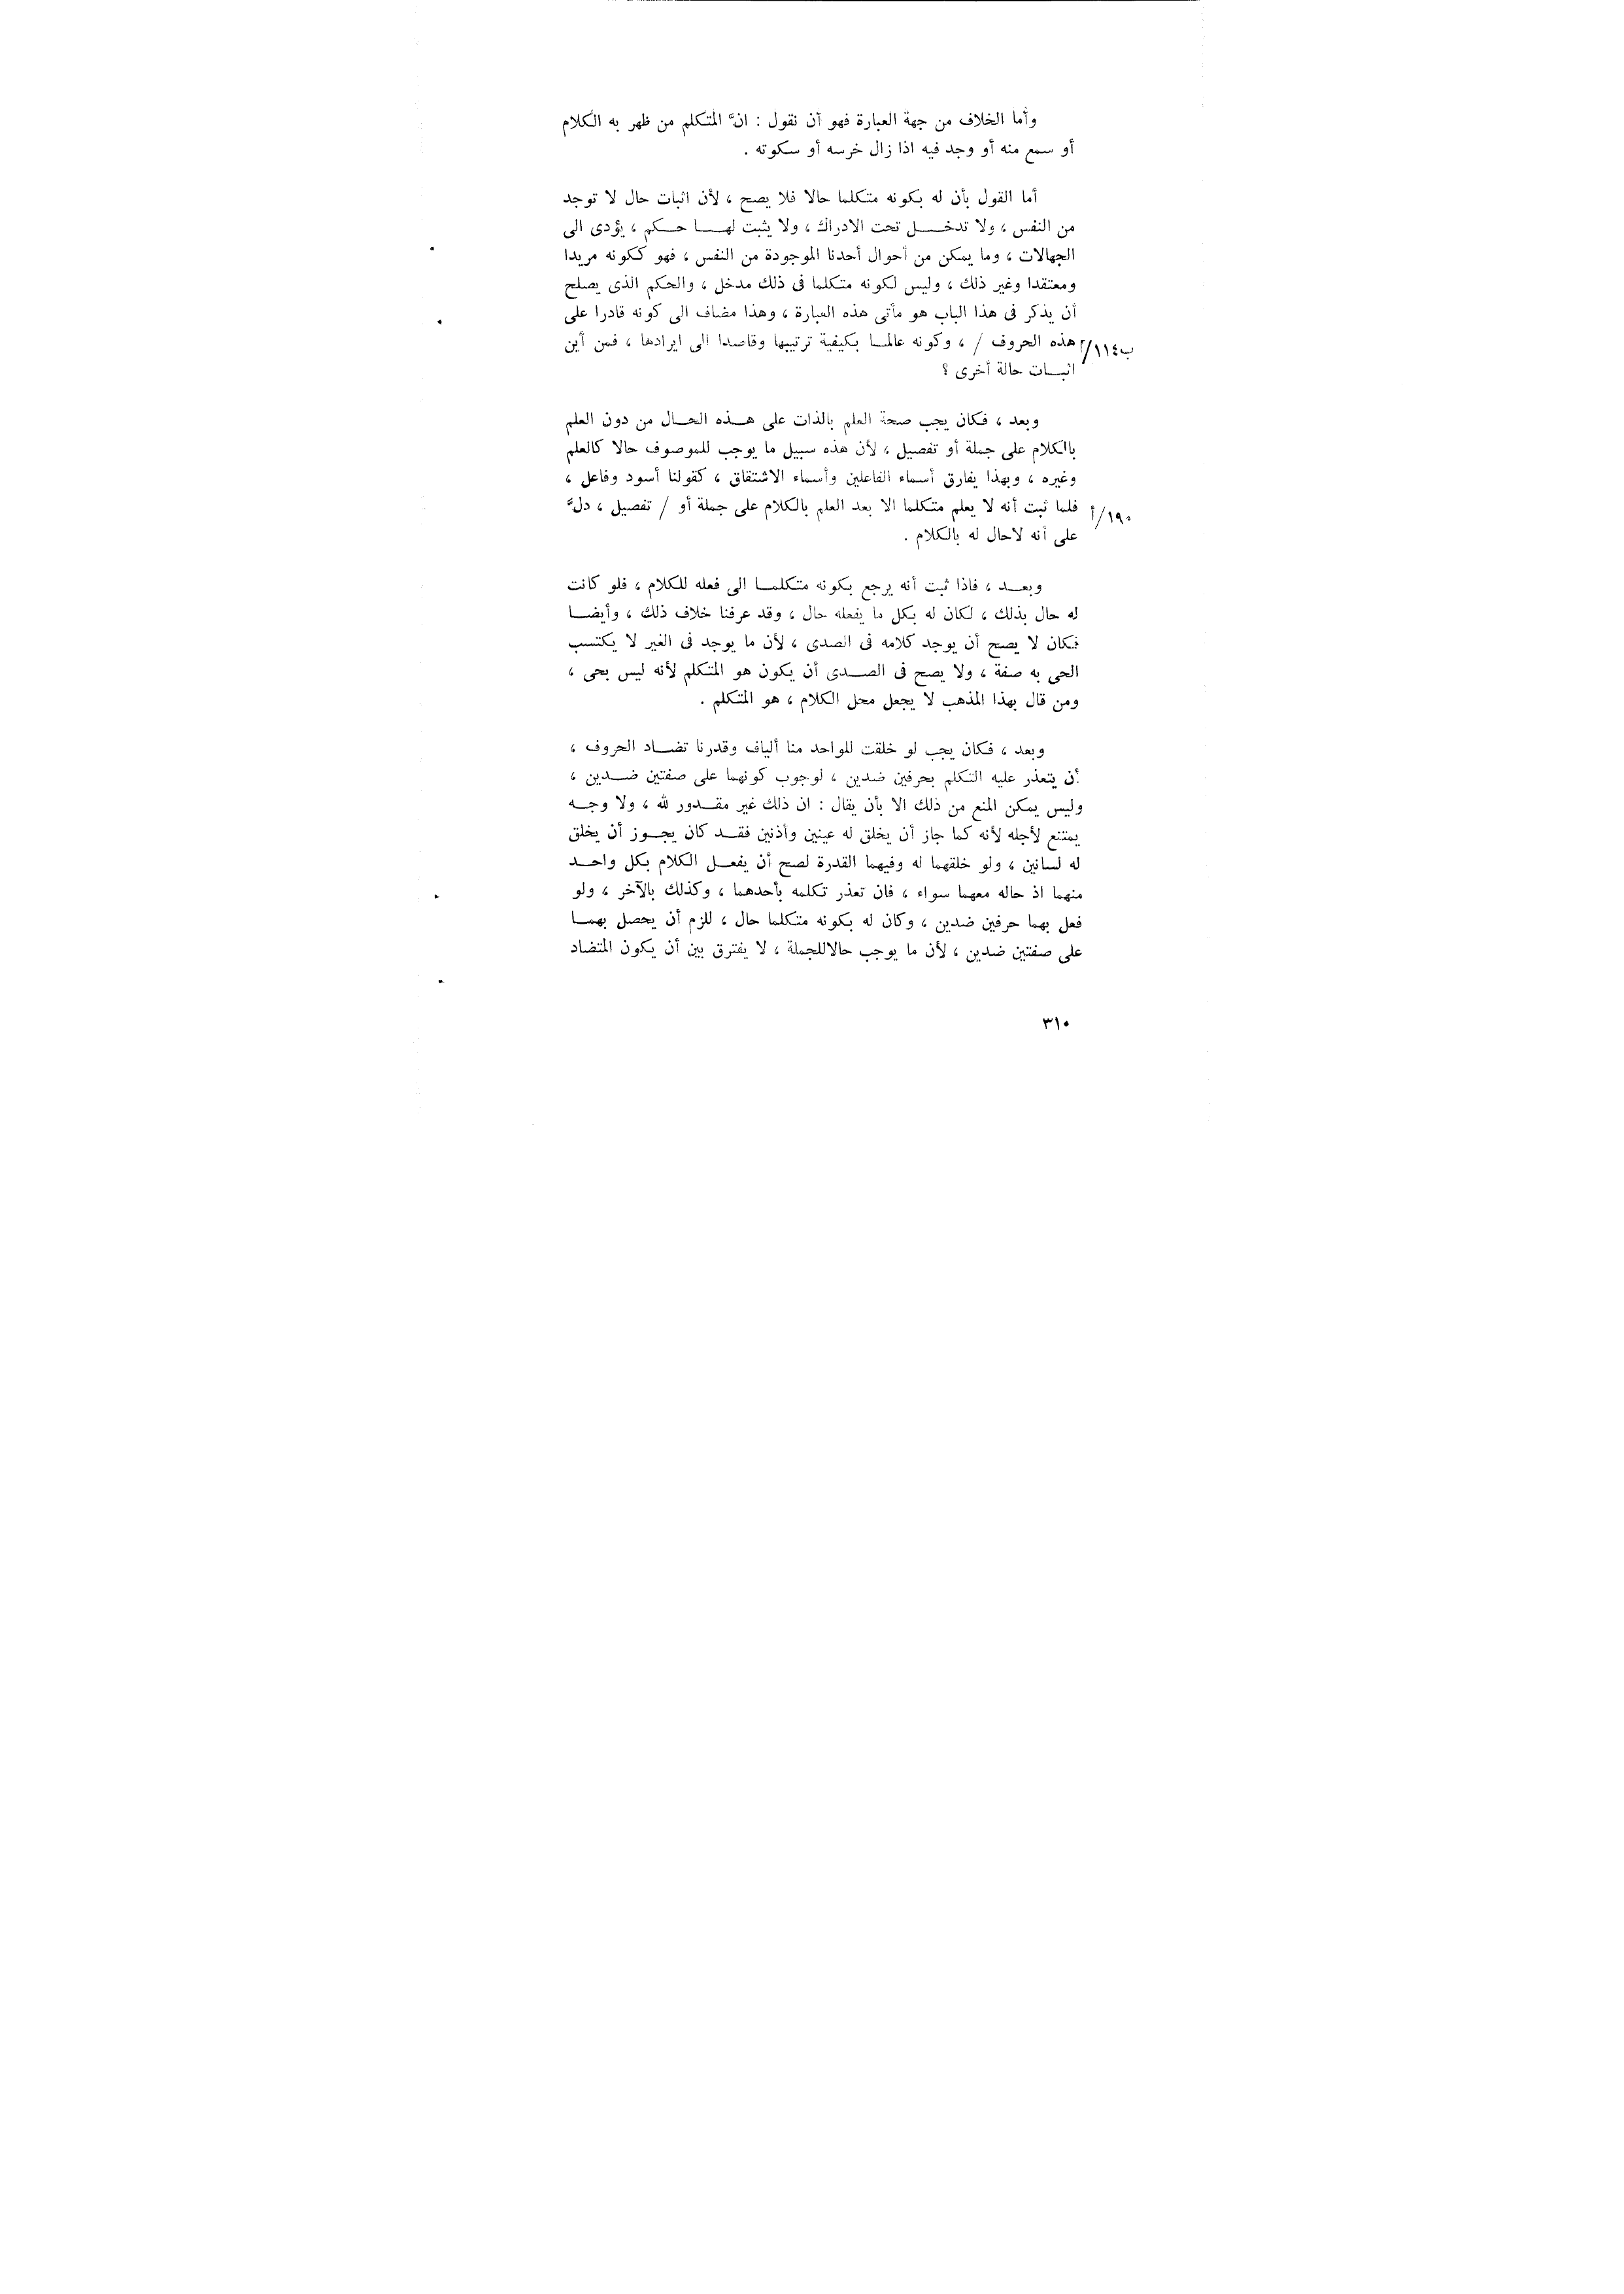 وأما الخلاف من جهة العبارة فهو أن نقول : انَّ المتكلم من ظهر به الكلام
أو سمع منه أو وجد فيه اذا زال خرسه أو سكوته .
أما القول بأن له بكونه متكلما حالا فلا يصح ، لأن اثبات حال لا توجد
من النفس ، ولا تدخــل تحت الادراك ، ولا يثبت لهــا حــكم ، يؤدى الى
الجهالات ، وما يمكن من أحوال أحدنا الموجودة من النفس ، فهو ككونه مريدا
ومعتقدا وغير ذلك ، وليس لكونه متكلما فى ذلك مدخل ، والحكم الذى يصلح
أن يذكر فى هذا الباب هو مأتى هذه العبارة ، وهذا مضاف الى كونه قادرا على
هذه الحروف / ، وكونه عالمــا بكيفية ترتيبها وقاصدا الى ايرادها ، فمن أين
١١٤ب
اثبــات حالة أخرى ؟
وبعد ، فكان يجب صحة العلم بالذات على هــذه الحــال من دون العلم
بالكلام على جملة أو تفصيل ، لأن هذه سبيل ما يوجب للموصوف حالا كالعلم
وغيره ، وبهذا يفارق أسماء الفاعلين وأسماء الاشتقاق ، كقولنا أسود وفاعل ،
فلما ثبت أنه لا يعلم متكلما الا بعد العلم بالكلام على جملة أو / تفصيل ، دلَّ
١٩٠/أ
على أنه لاحال له بالكلام .
وبعــد ، فاذا ثبت أنه يرجع بكونه متكلمــا الى فعله للكلام ، فلو كانت
له حال بذلك ، لكان له بكل ما يفعله حال ، وقد عرفنا خلاف ذلك ، وأيضــا
فكان لا يصح أن يوجد كلامه فى الصدى ، لأن ما يوجد فى الغير لا يكتسب
الحى به صفة ، ولا يصح فى الصــدى أن يكون هو المتكلم لأنه ليس بحى ،
ومن قال بهذا المذهب لا يجعل محل الكلام ، هو المتكلم .
وبعد ، فكان يجب لو خلقت للواحد منا ألياف وقدرنا تضــاد الحروف ،
أن يتعذر عليه التكلم بحرفين ضدين ، لوجوب كونهما على صفتين ضــدين ،
وليس يمكن المنع من ذلك الا بأن يقال : ان ذلك غير مقــدور لله ، ولا وجــه
يمتنع لأجله لأنه كما جاز أن يخلق له عينين وأذنين فقــد كان يجــوز أن يخلق
له لسانين ، ولو خلقهما له وفيهما القدرة لصح أن يفعــل الكلام بكل واحــد
منهما اذ حاله معهما سواء ، فان تعذر تكلمه بأحدهما ، وكذلك بالآخر ، ولو
فعل بهما حرفين ضدين ، وكان له بكونه متكلما حال ، للزم أن يحصل بهمــا
على صفتين ضدين ، لأن ما يوجب حالاللجملة ، لا يفترق بين أن يكون المتضاد
٣١٠